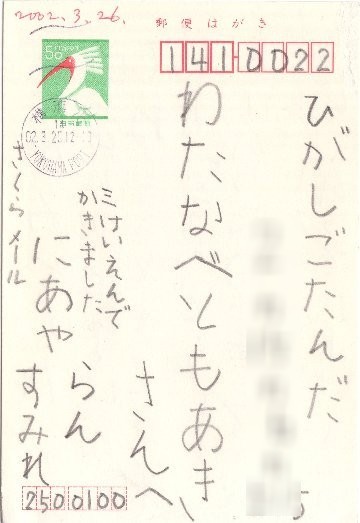 2002.3.26.
郵便はがき
50
141-0022
02.3.25.12-18
YOKOHAMA PORT
ひがしごたんだ
5
わたなべともあき
さんへ
三けいえんで
かきました
さくらメール
にあや
らん
すみれ
2500100